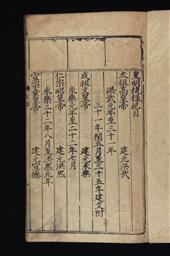 皇明從信錄總目
太祖高皇帝 建元洪武
洪武元年至三十年
三十一年閏五月至三十五年建文附
成祖文皇帝 建元永樂
永樂元年至二十二年七月
仁宗昭皇帝 建元洪熙
永樂二十二年八月至洪熙元年
宣宗章皇帝 建元宣德